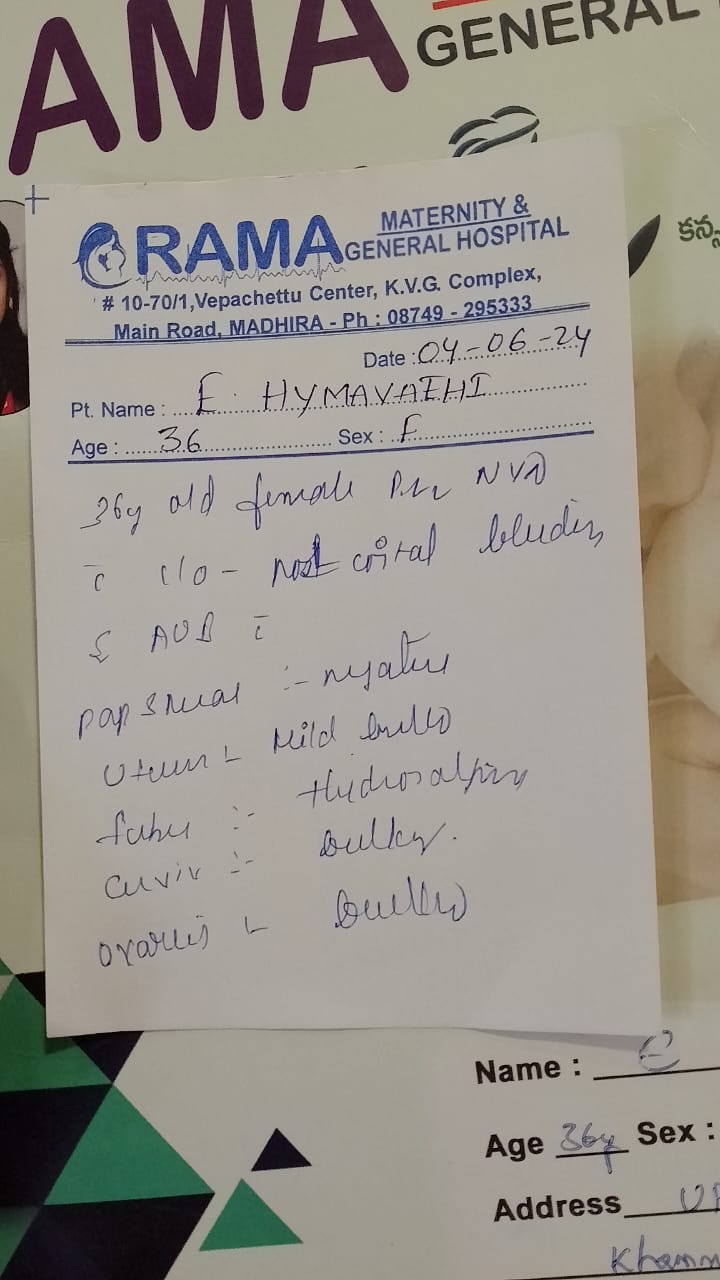 AMA
GENERAL
RAMA
MATERNITY &
GENERAL HOSPITAL
# 10-70/1,Vepachettu Center, K.V.G. Complex,
Main Road, MADHIRA - Ph : 08749 - 295333
కన్న
Date : 04-06-24
Pt. Name : E. HYMAVATHI
Age : 36 Sex : F
36y old female NVD
c̄ c/o - post coital bleeding
& AUB c̄
pap smear :-
Uterus :- Mild bulky
tubes :- Hydrosalpinx
Cervix :- Bulky.
Ovaries :- Bulky
Name : E
Age 36y Sex :
Address
Khamm